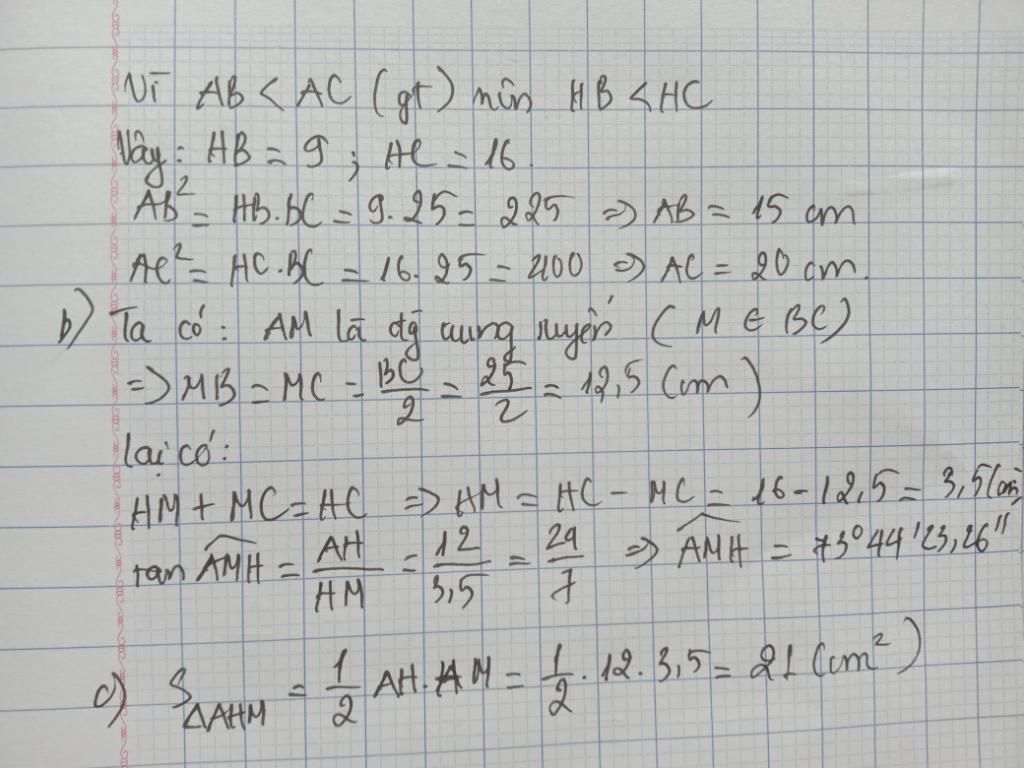 Vì AB < AC (gt) nên HB < HC
Vậy: HB = 9 ; HC = 16.
AB² = HB.BC = 9.25 = 225 => AB = 15 cm
AC² = HC.BC = 16.25 = 400 => AC = 20 cm.
b) Ta có: AM là đg trung tuyến (M ∈ BC)
=> MB = MC = BC/2 = 25/2 = 12,5 (cm)
lại có:
HM + MC = HC => HM = HC - MC = 16 - 12,5 = 3,5 (cm)
tan AMH = AH/HM = 12/3,5 = 24/7 => AMH = 73°44'23,26"
c) S ΔAHM = 1/2 AH.HM = 1/2 . 12 . 3,5 = 21 (cm²)